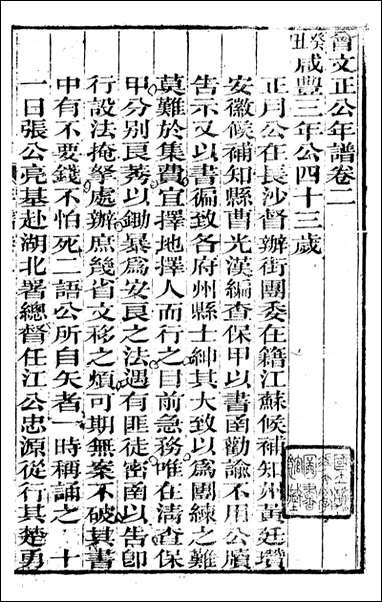 曾文正公年譜卷二
癸丑咸豐三年公四十三歲
正月公在長沙督辦街團委在籍江蘇候補知州黃廷瓚
安徽候補知縣曹光漢編查保甲以書函勸諭不用公牘
告示又以書徧致各府州縣士紳其大致以爲團練之難
莫難於集費宜擇地擇人而行之目前急務唯在清查保
甲分別良莠以鋤暴爲安良之法遇有匪徒密函以告卽
行設法掩拏處辦庶幾省文移之煩可期無案不破其書
中有不要錢不怕死二語公所自矢者一時稱誦之　十
一日張公亮基赴湖北署總督任江公忠源從行其楚勇